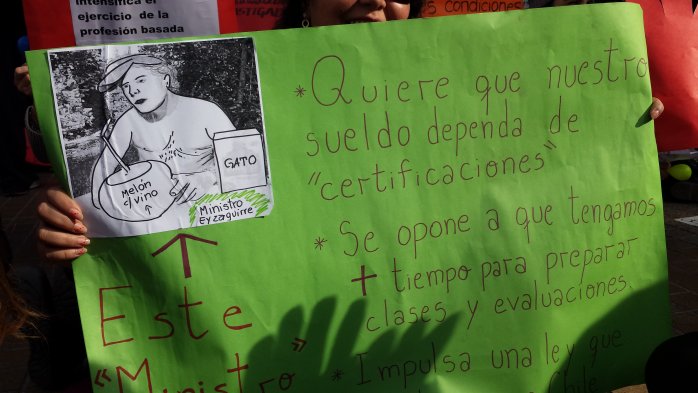 Intensifica el
ejercicio de la
profesión basada
CONDICIONES
Melón
c/vino
GATO
Ministro
Eyzaguirre
Este
"Ministro"
* Quiere que nuestro
sueldo dependa de
"certificaciones"
* Se opone a que tengamos
+ tiempo para preparar
clases y evaluaciones.
* Impulsa una ley que
Chile